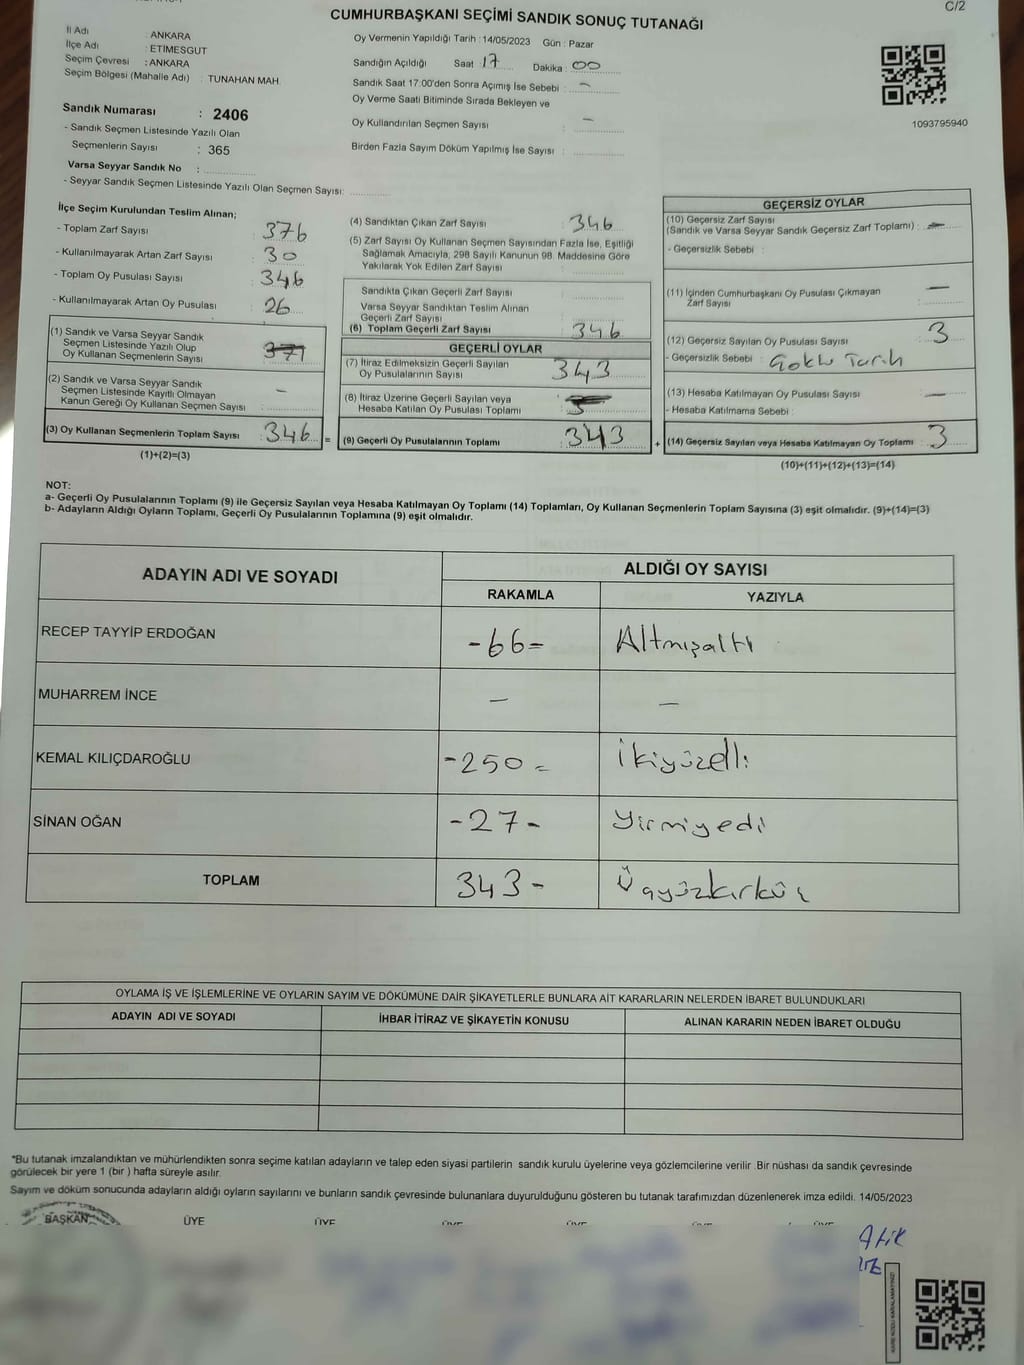 C/2
CUMHURBAŞKANI SEÇİMİ SANDIK SONUÇ TUTANAĞI
İl Adı : ANKARA
İlçe Adı : ETİMESGUT
Seçim Çevresi : ANKARA
Seçim Bölgesi (Mahalle Adı) : TUNAHAN MAH.
Oy Vermenin Yapıldığı Tarih : 14/05/2023 Gün : Pazar
Sandığın Açıldığı Saat 17 Dakika : 00
Sandık Saat 17:00'den Sonra Açımış İse Sebebi : -
Oy Verme Saati Bitiminde Sırada Bekleyen ve
Oy Kullandırılan Seçmen Sayısı : -
Birden Fazla Sayım Döküm Yapılmış İse Sayısı :
1093795940
Sandık Numarası : 2406
- Sandık Seçmen Listesinde Yazılı Olan
Seçmenlerin Sayısı : 365
Varsa Seyyar Sandık No :
- Seyyar Sandık Seçmen Listesinde Yazılı Olan Seçmen Sayısı:
İlçe Seçim Kurulundan Teslim Alınan;
- Toplam Zarf Sayısı 376
- Kullanılmayarak Artan Zarf Sayısı : 30
- Toplam Oy Pusulası Sayısı : 346
- Kullanılmayarak Artan Oy Pusulası : 26
(1) Sandık ve Varsa Seyyar Sandık
Seçmen Listesinde Yazılı Olup
Oy Kullanan Seçmenlerin Sayısı
(2) Sandık ve Varsa Seyyar Sandık
Seçmen Listesinde Kayıtlı Olmayan
Kanun Gereği Oy Kullanan Seçmen Sayısı : -
(3) Oy Kullanan Seçmenlerin Toplam Sayısı : 346 =
(1)+(2)=(3)
(4) Sandıktan Çıkan Zarf Sayısı : 346
(5) Zarf Sayısı Oy Kullanan Seçmen Sayısından Fazla İse, Eşitliği
Sağlamak Amacıyla; 298 Sayılı Kanunun 98. Maddesine Göre
Yakılarak Yok Edilen Zarf Sayısı :
Sandıkta Çıkan Geçerli Zarf Sayısı :
Varsa Seyyar Sandıktan Teslim Alınan
Geçerli Zarf Sayısı :
(6) Toplam Geçerli Zarf Sayısı : 346
GEÇERLİ OYLAR
(7) İtiraz Edilmeksizin Geçerli Sayılan
Oy Pusulalarının Sayısı : 343
(8) İtiraz Üzerine Geçerli Sayılan veya
Hesaba Katılan Oy Pusulası Toplamı :
(9) Geçerli Oy Pusulalarının Toplamı : 343 +
GEÇERSİZ OYLAR
(10) Geçersiz Zarf Sayısı
(Sandık ve Varsa Seyyar Sandık Geçersiz Zarf Toplamı) : -
- Geçersizlik Sebebi :
(11) İçinden Cumhurbaşkanı Oy Pusulası Çıkmayan
Zarf Sayısı : -
(12) Geçersiz Sayılan Oy Pusulası Sayısı : 3
- Geçersizlik Sebebi :
(13) Hesaba Katılmayan Oy Pusulası Sayısı : -
- Hesaba Katılmama Sebebi :
(14) Geçersiz Sayılan veya Hesaba Katılmayan Oy Toplamı : 3
(10)+(11)+(12)+(13)=(14)
NOT:
a- Geçerli Oy Pusulalarının Toplamı (9) ile Geçersiz Sayılan veya Hesaba Katılmayan Oy Toplamı (14) Toplamları, Oy Kullanan Seçmenlerin Toplam Sayısına (3) eşit olmalıdır. (9)+(14)=(3)
b- Adayların Aldığı Oyların Toplamı, Geçerli Oy Pusulalarının Toplamına (9) eşit olmalıdır.
ADAYIN ADI VE SOYADI ALDIĞI OY SAYISI
RAKAMLA YAZIYLA
RECEP TAYYİP ERDOĞAN -66= Altmışaltı
MUHARREM İNCE - -
KEMAL KILIÇDAROĞLU -250= İkiyüzelli
SİNAN OĞAN -27- Yirmiyedi
TOPLAM 343- Üçyüzkırküç
OYLAMA İŞ VE İŞLEMLERİNE VE OYLARIN SAYIM VE DÖKÜMÜNE DAİR ŞİKAYETLERLE BUNLARA AİT KARARLARIN NELERDEN İBARET BULUNDUKLARI
ADAYIN ADI VE SOYADI İHBAR İTİRAZ VE ŞİKAYETİN KONUSU ALINAN KARARIN NEDEN İBARET OLDUĞU
*Bu tutanak imzalandıktan ve mühürlendikten sonra seçime katılan adayların ve talep eden siyasi partilerin sandık kurulu üyelerine veya gözlemcilerine verilir .Bir nüshası da sandık çevresinde
görülecek bir yere 1 (bir ) hafta süreyle asılır.
Sayım ve döküm sonucunda adayların aldığı oyların sayılarını ve bunların sandık çevresinde bulunanlara duyurulduğunu gösteren bu tutanak tarafımızdan düzenlenerek imza edildi. 14/05/2023
BAŞKAN ÜYE ÜYE ÜYE ÜYE ÜYE ÜYE